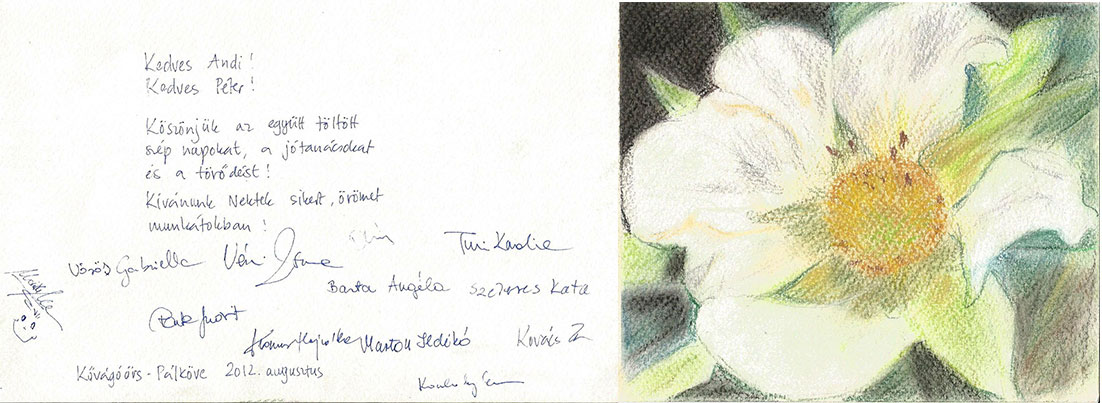 Kedves Andi!
Kedves Péter!
Köszönjük az együtt töltött
szép napokat, a jótanácsokat
és a törődést!
Kívánunk Nektek sikert, örömet
munkátokban!
Vörös Gabriella
Turi Kardie
Barta Angéla
Szekeres Kata
Marton Ildikó
Kovács
Kővágóörs - Pálköve 2012. augusztus